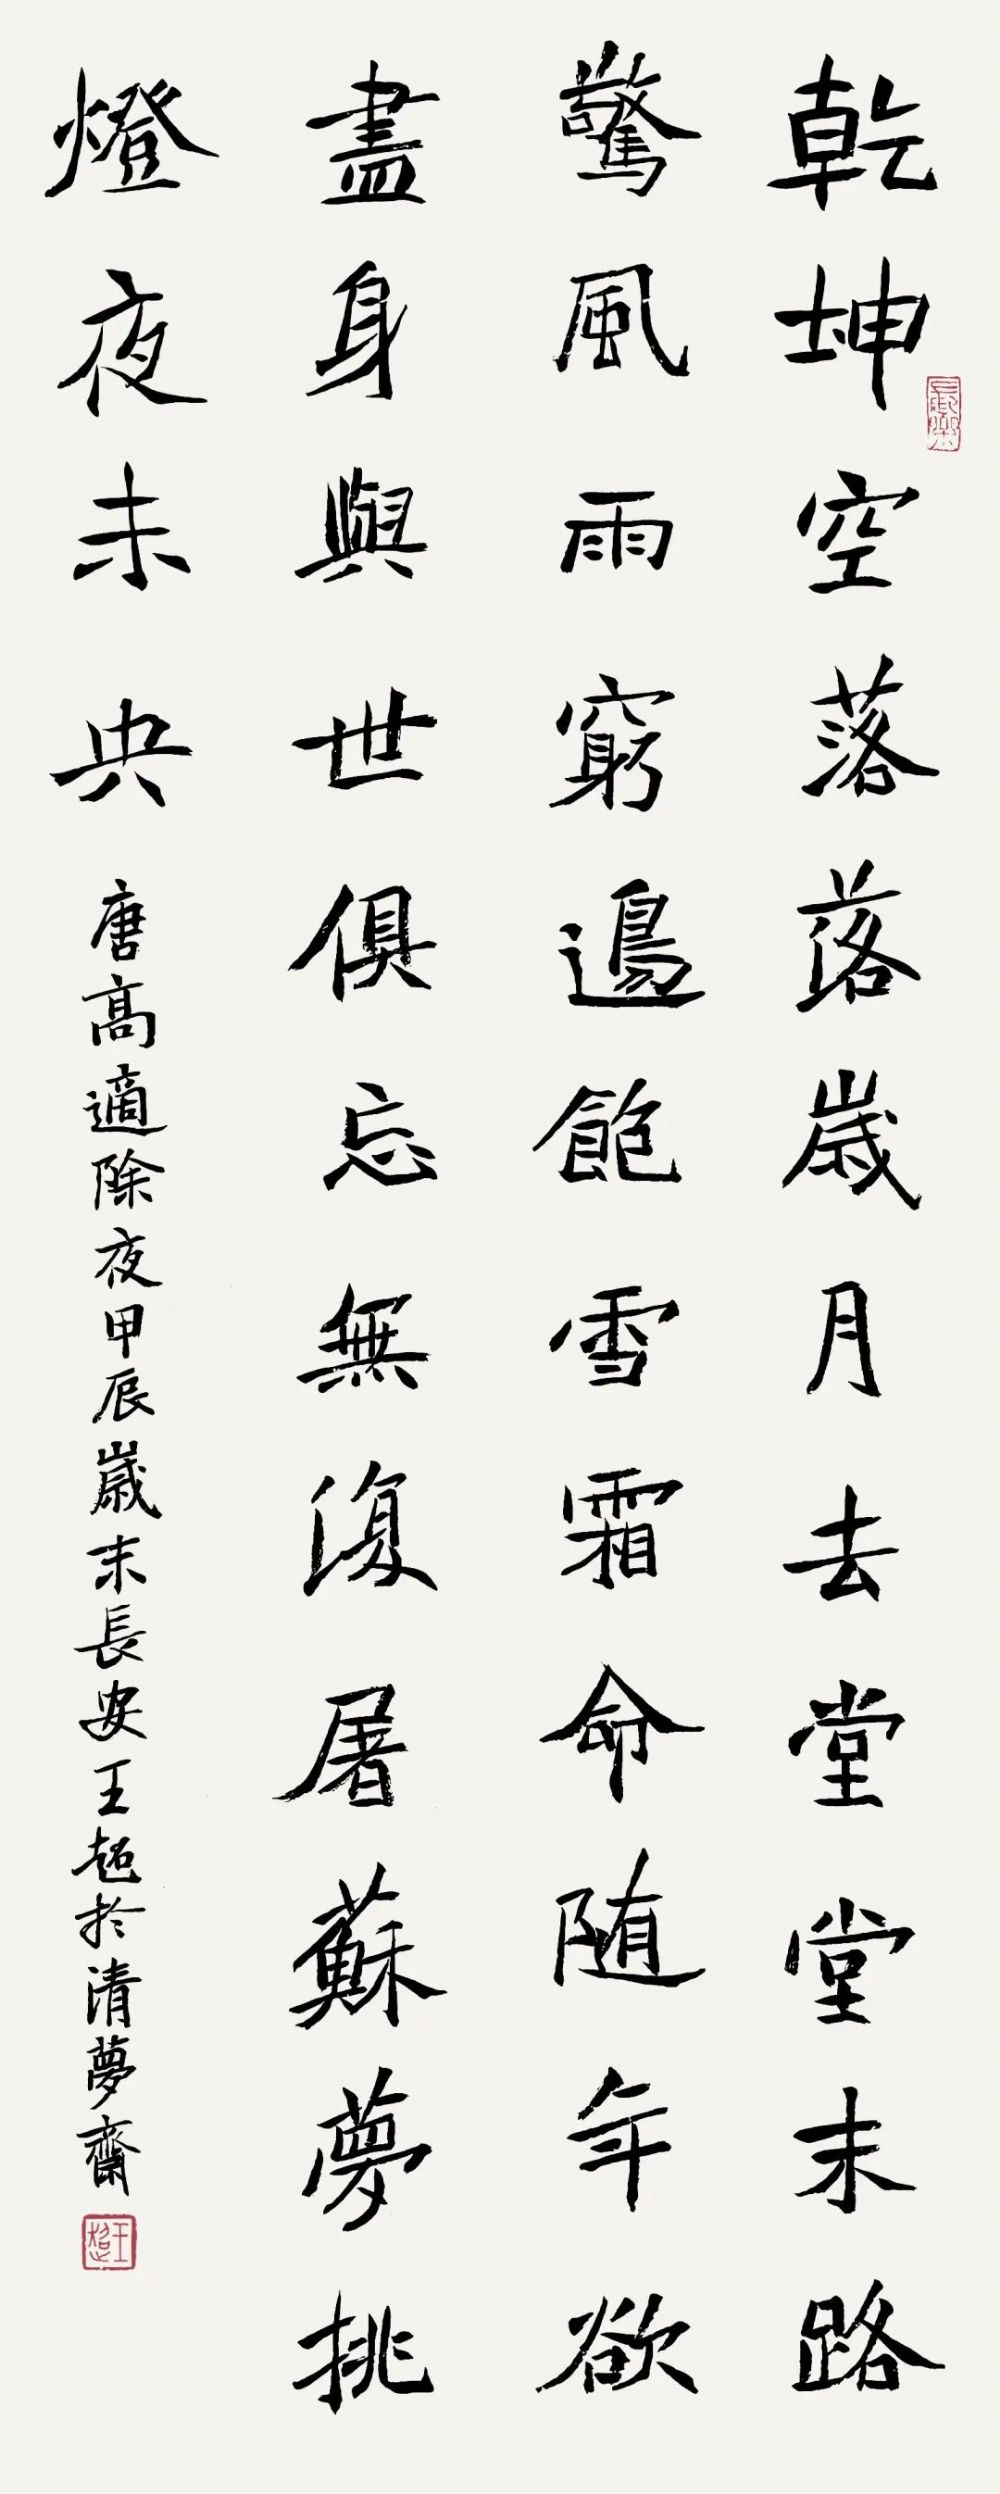 乾坤空落落歲月去堂堂末路
驚風雨窮邊飽雪霜命随年欲
盡身與世俱忘無復屠蘇夢挑
燈夜未央
唐高適除夜甲辰歲末長安王超於清夢齋
長樂
王超